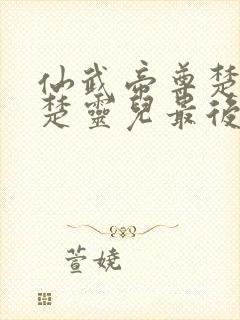 仙武帝尊楚
楚靈兒最後
萱娆